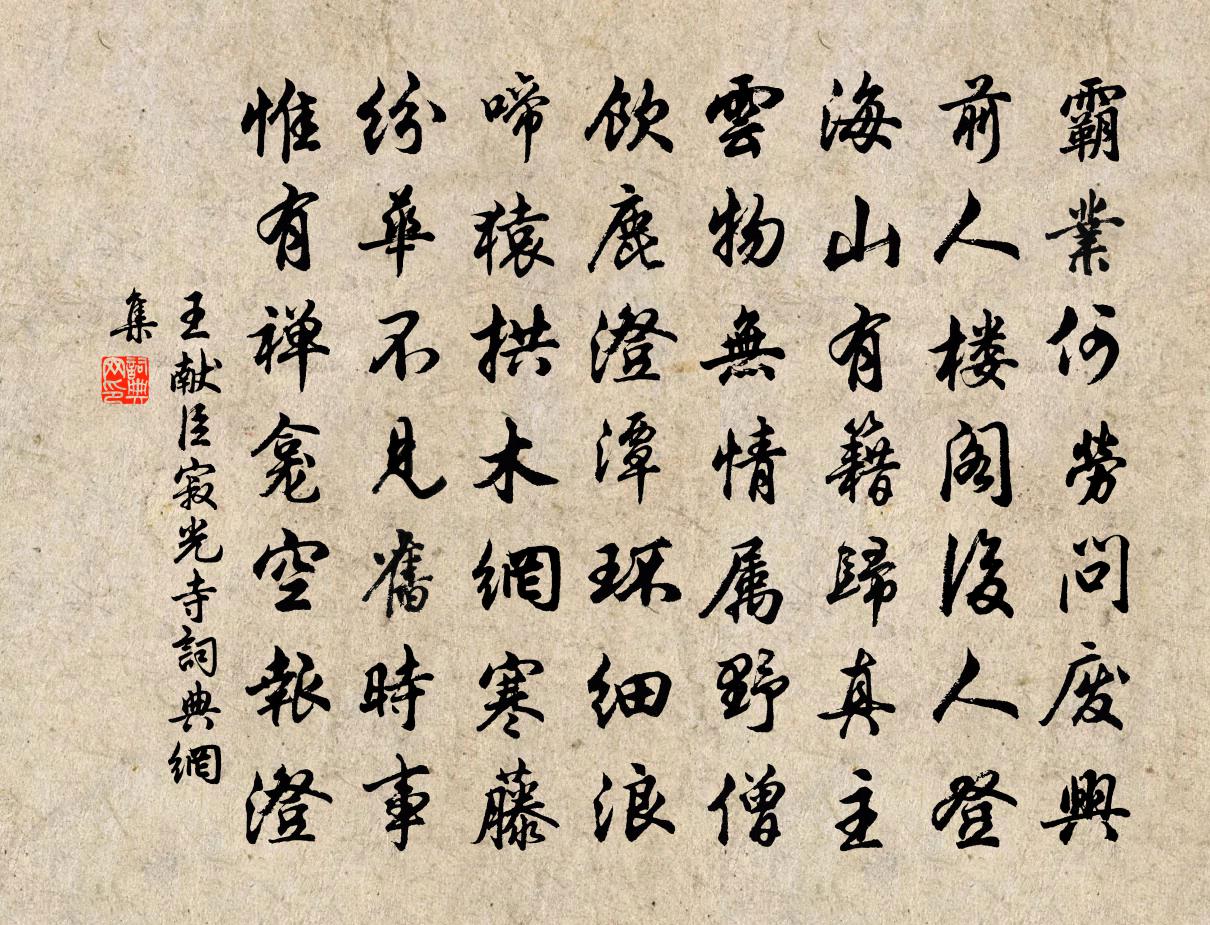 霸業何勞問废興
前人楼阁後人登
海山有籍歸真主
雲物無情属野僧
飲鹿澄潭环細浪
啼猿拱木網寒藤
纷華不見舊時事
惟有禅龛空報澄
王献臣寂光寺詞典網
集
詞典网印